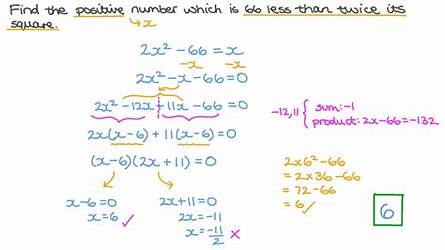 Find the positive number which is 66 less than twice its
square.
→x
2x² - 66 = x
-x -x
2x² - x - 66 = 0
2x² - 12x + 11x - 66 = 0
-12, 11 { sum: -1
product: 2x - 66 = -132
2x(x - 6) + 11(x - 6) = 0
(x - 6)(2x + 11) = 0
x - 6 = 0
x = 6 ✓
2x + 11 = 0
2x = -11
x = -11/2 ×
2×6² - 66
= 2×36 - 66
= 72 - 66
= 6 ✓
6